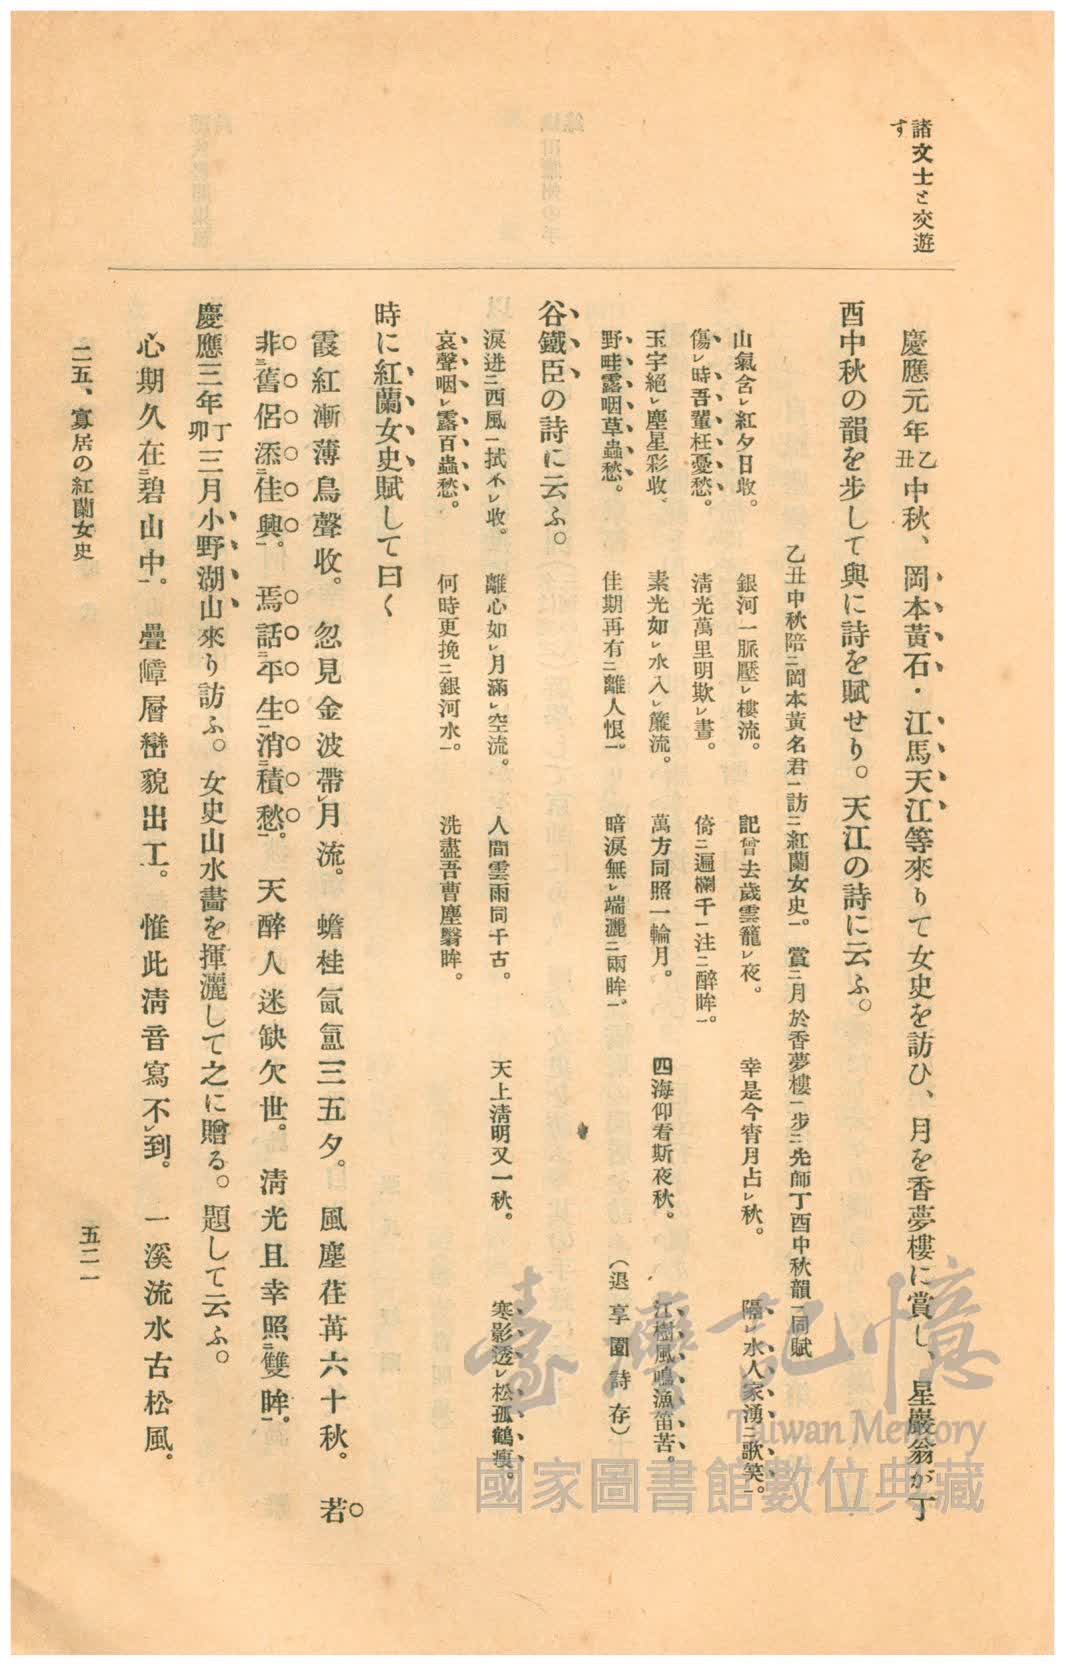 諸文士と交遊
す
慶應元年乙丑中秋、岡本黃石・江馬天江等來りて女史を訪ひ、月を香夢樓に賞し、星巖翁が丁
酉中秋の韻を步して與に詩を賦せり。天江の詩に云ふ。
乙丑中秋陪二岡本黃名君一訪二紅蘭女史一。賞二月於香夢樓一步二先師丁酉中秋韻一同賦
山氣含レ紅夕日收。銀河一脈壓レ樓流。記曾去歲雲籠レ夜。幸是今宵月占レ秋。隔レ水人家湧二歌笑一。
傷レ時吾輩枉憂愁。淸光萬里明欺レ晝。倚二遍欄千一注二醉眸一。
玉宇絕レ塵星彩收。素光如レ水入レ簾流。萬方同照一輪月。四海仰看斯夜秋。江樹風鳴漁笛苦。
野畦露咽草蟲愁。佳期再有二離人恨一。暗淚無レ端灑二兩眸一。（退享園詩存）
谷鐵臣の詩に云ふ。
淚迸二西風一拭不レ收。離心如レ月滿レ空流。人間雲雨同千古。天上淸明又一秋。寒影透レ松孤鶴瘦。
哀聲咽レ露百蟲愁。何時更挽二銀河水一。洗盡吾曹塵翳眸。
時に紅蘭女史賦して曰く
霞紅漸薄鳥聲收。忽見金波帶レ月流。蟾桂氤氳三五夕。風塵荏苒六十秋。若
非二舊侶添二佳興一。焉話二平生一消二積愁一。天醉人迷缺欠世。淸光且幸照二雙眸一。
慶應三年丁卯三月小野湖山來り訪ふ。女史山水畵を揮灑して之に贈る。題して云ふ。
心期久在二碧山中一。疊嶂層巒貌出工。惟此淸音寫不レ到。一溪流水古松風。
二五、寡居の紅蘭女史
五二一
臺灣記憶
Taiwan Memory
國家圖書館數位典藏